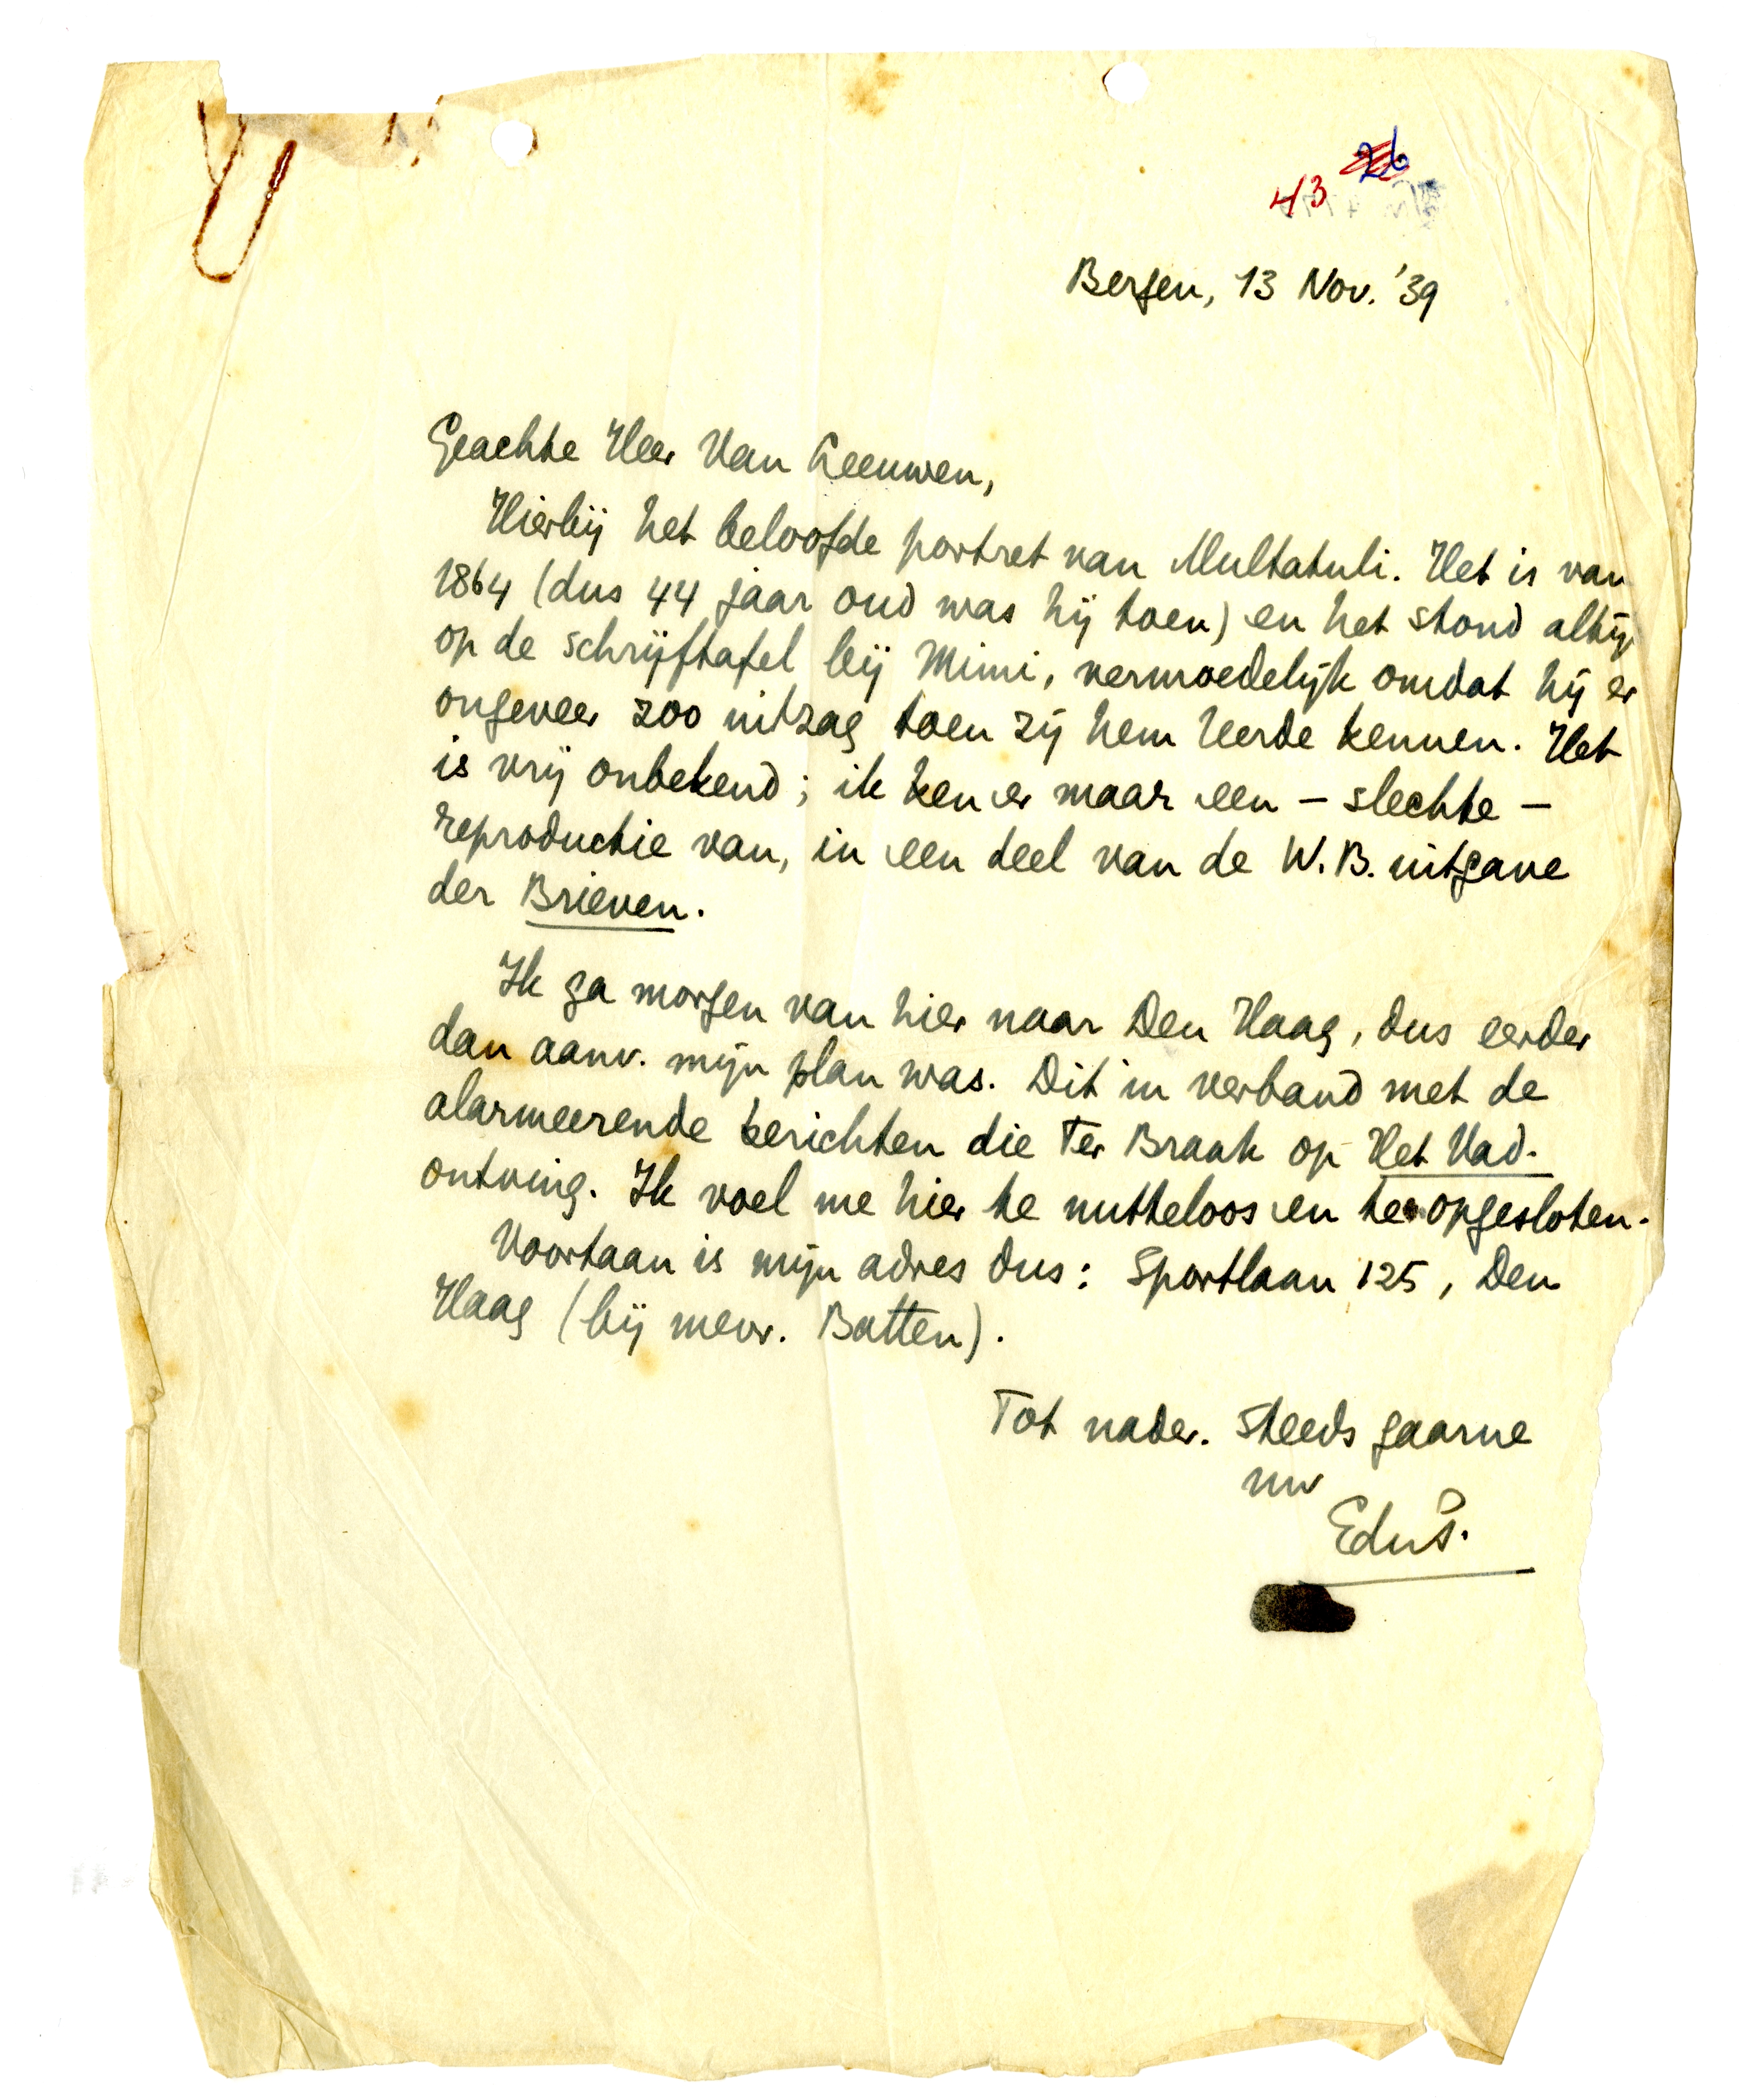 26
43
Bergen, 13 Nov. '39
Geachte Heer Van Leeuwen,
Hierbij het beloofde portret van Multatuli. Het is van
1864 (dus 44 jaar oud was hij toen) en het stond altij
op de schrijftafel bij Mimi, vermoedelijk omdat hij er
ongeveer zoo uitzag toen zij hem leerde kennen. Het
is vrij onbekend; ik ken er maar een – slechte –
reproductie van, in een deel van de W.B. uitgave
der Brieven.
Ik ga morgen van hier naar Den Haag, dus eerder
dan aanv. mijn plan was. Dit in verband met de
alarmeerende berichten die Ter Braak op Het Vad.
ontving. Ik voel me hier te nutteloos en te opgesloten.
Voortaan is mijn adres dus: Sportlaan 125, Den
Haag (bij mevr. Batten).
Tot nader. Steeds gaarne
uw
EduP.